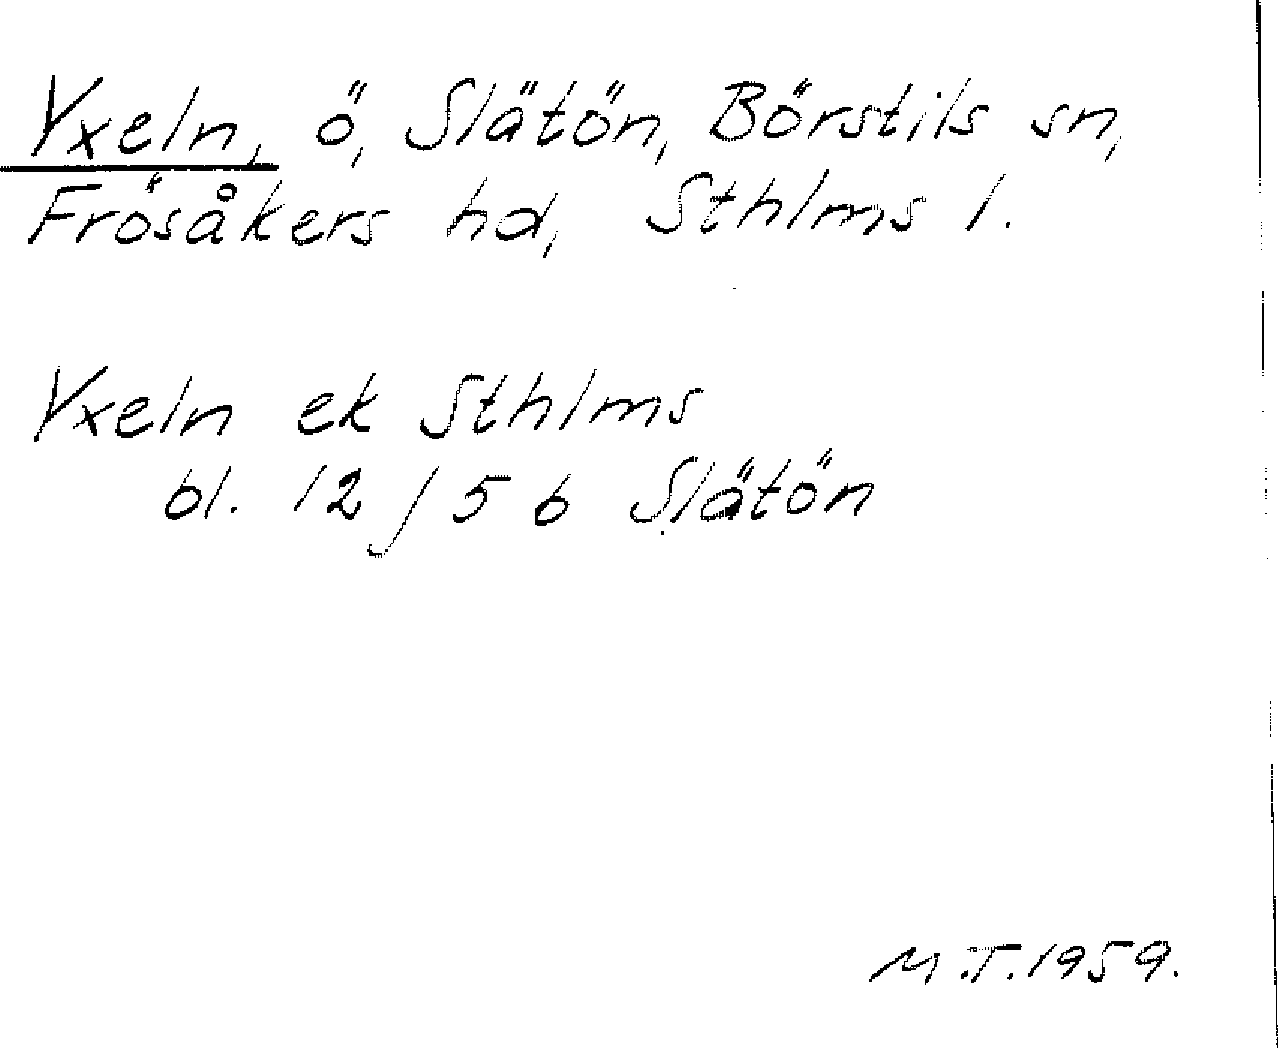 Yxeln, ö, Slätön, Börstils sn,
Frösåkers hd, Sthlms l.
Yxeln ek Sthlms
bl. 12/56 Slätön
M.T.1959.